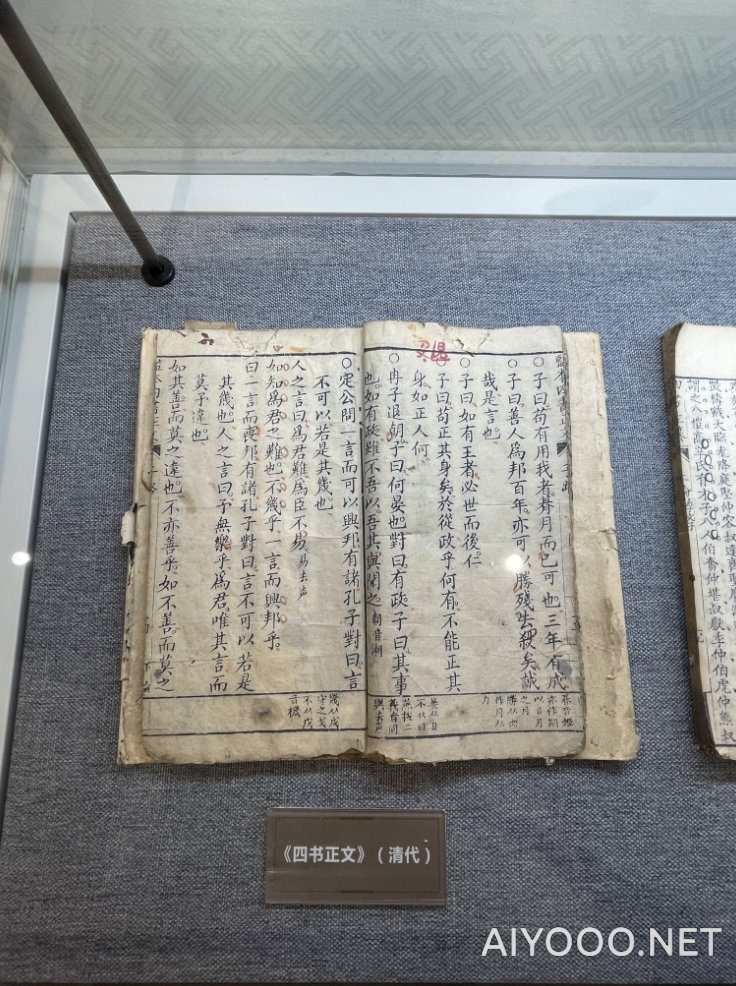 ○子曰苟有用我者朞月而已可也三年有成
○子曰善人爲邦百年亦可以勝殘去殺矣誠
哉是言也
○子曰如有王者必世而後仁
○子曰苟正其身矣於從政乎何有不能正其
身如正人何
○冉子退朝子曰何晏也對曰有政子曰其事
也如有政雖不吾以吾其與聞之 朝音潮
○定公問一言而可以興邦有諸孔子對曰言
不可以若是其幾也
人之言曰爲君難爲臣不易 易去声
如知爲君之難也不幾乎一言而興邦乎
曰一言而喪邦有諸孔子對曰言不可以若是
其幾也人之言曰予無樂乎爲君唯其言而
莫予違也
如其善而莫之違也不亦善乎如不善而莫之
幾从戍
守之戍
不从戊
音機
《四书正文》（清代）
AIYOOO.NET